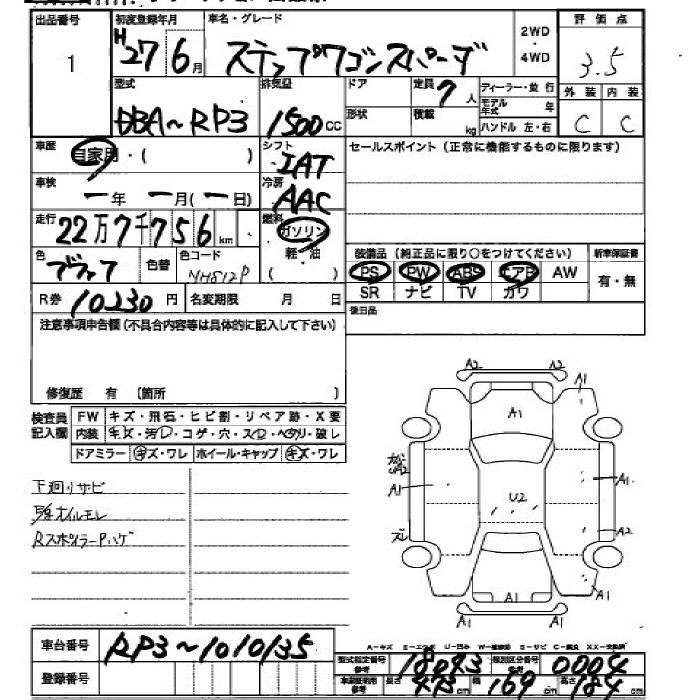 出品番号 初度登録年月 車名・グレード 2WD・4WD 評価点
1 H27 6月 ステップワゴンスパーダ 3.5
型式 排気量 ドア 定員 7人 ディーラー・並行 外装 内装
DBA~RP3 1500cc 形状 積載 kg モデル年式 年 C C
ハンドル 左・右
車歴 自家用・( ) シフト IAT セールスポイント(正常に機能するものに限ります)
車検 ー年 ー月(ー日) 冷房 AAC
走行 22万7千756km 燃料 ガソリン 軽・油 ( )
装備品(純正品に限り○をつけてください) 新車保証書
色 ブラック 色替 色コード NH812P
PS PW ABS エアB AW 有・無
SR ナビ TV カワ
R券 10230円 名変期限 月 日 後日品
注意事項申告欄(不具合内容等は具体的に記入して下さい)
修復歴 有 〔箇所 〕
検査員記入欄 FW キズ・飛石・ヒビ割・リペア跡・X要
内装 キズ・汚レ・コゲ・穴・スレ・ヘタリ・破レ
ドアミラー キズ・ワレ ホイール・キャップ キズ・ワレ
下廻りサビ
オイルモレ
RスポイラーPハゲ
A2 A2
A1
A1
U2
A1
A1
U2
A1
A2
A1
A1
A1 A1
A-キズ
車台番号 RP3~1010135
型式指定番号 18043 類別区分番号 0004
登録番号 長さ 473cm 幅 169cm 高さ 184cm